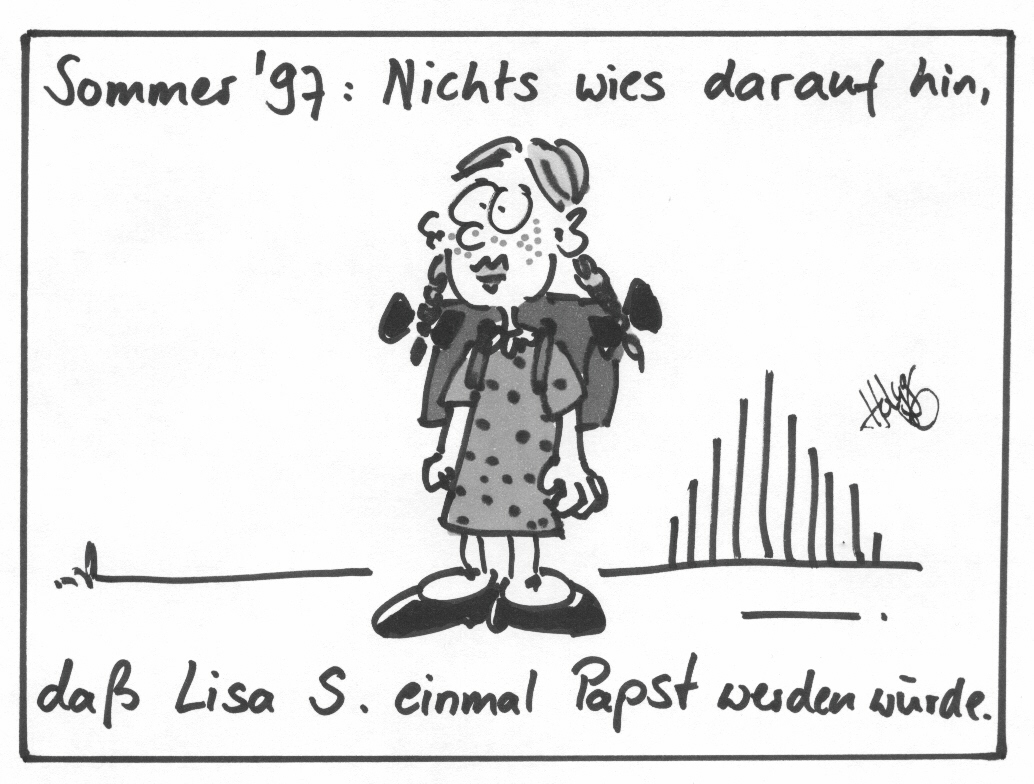 Sommer '97: Nichts wies darauf hin,
daß Lisa S. einmal Papst werden würde.